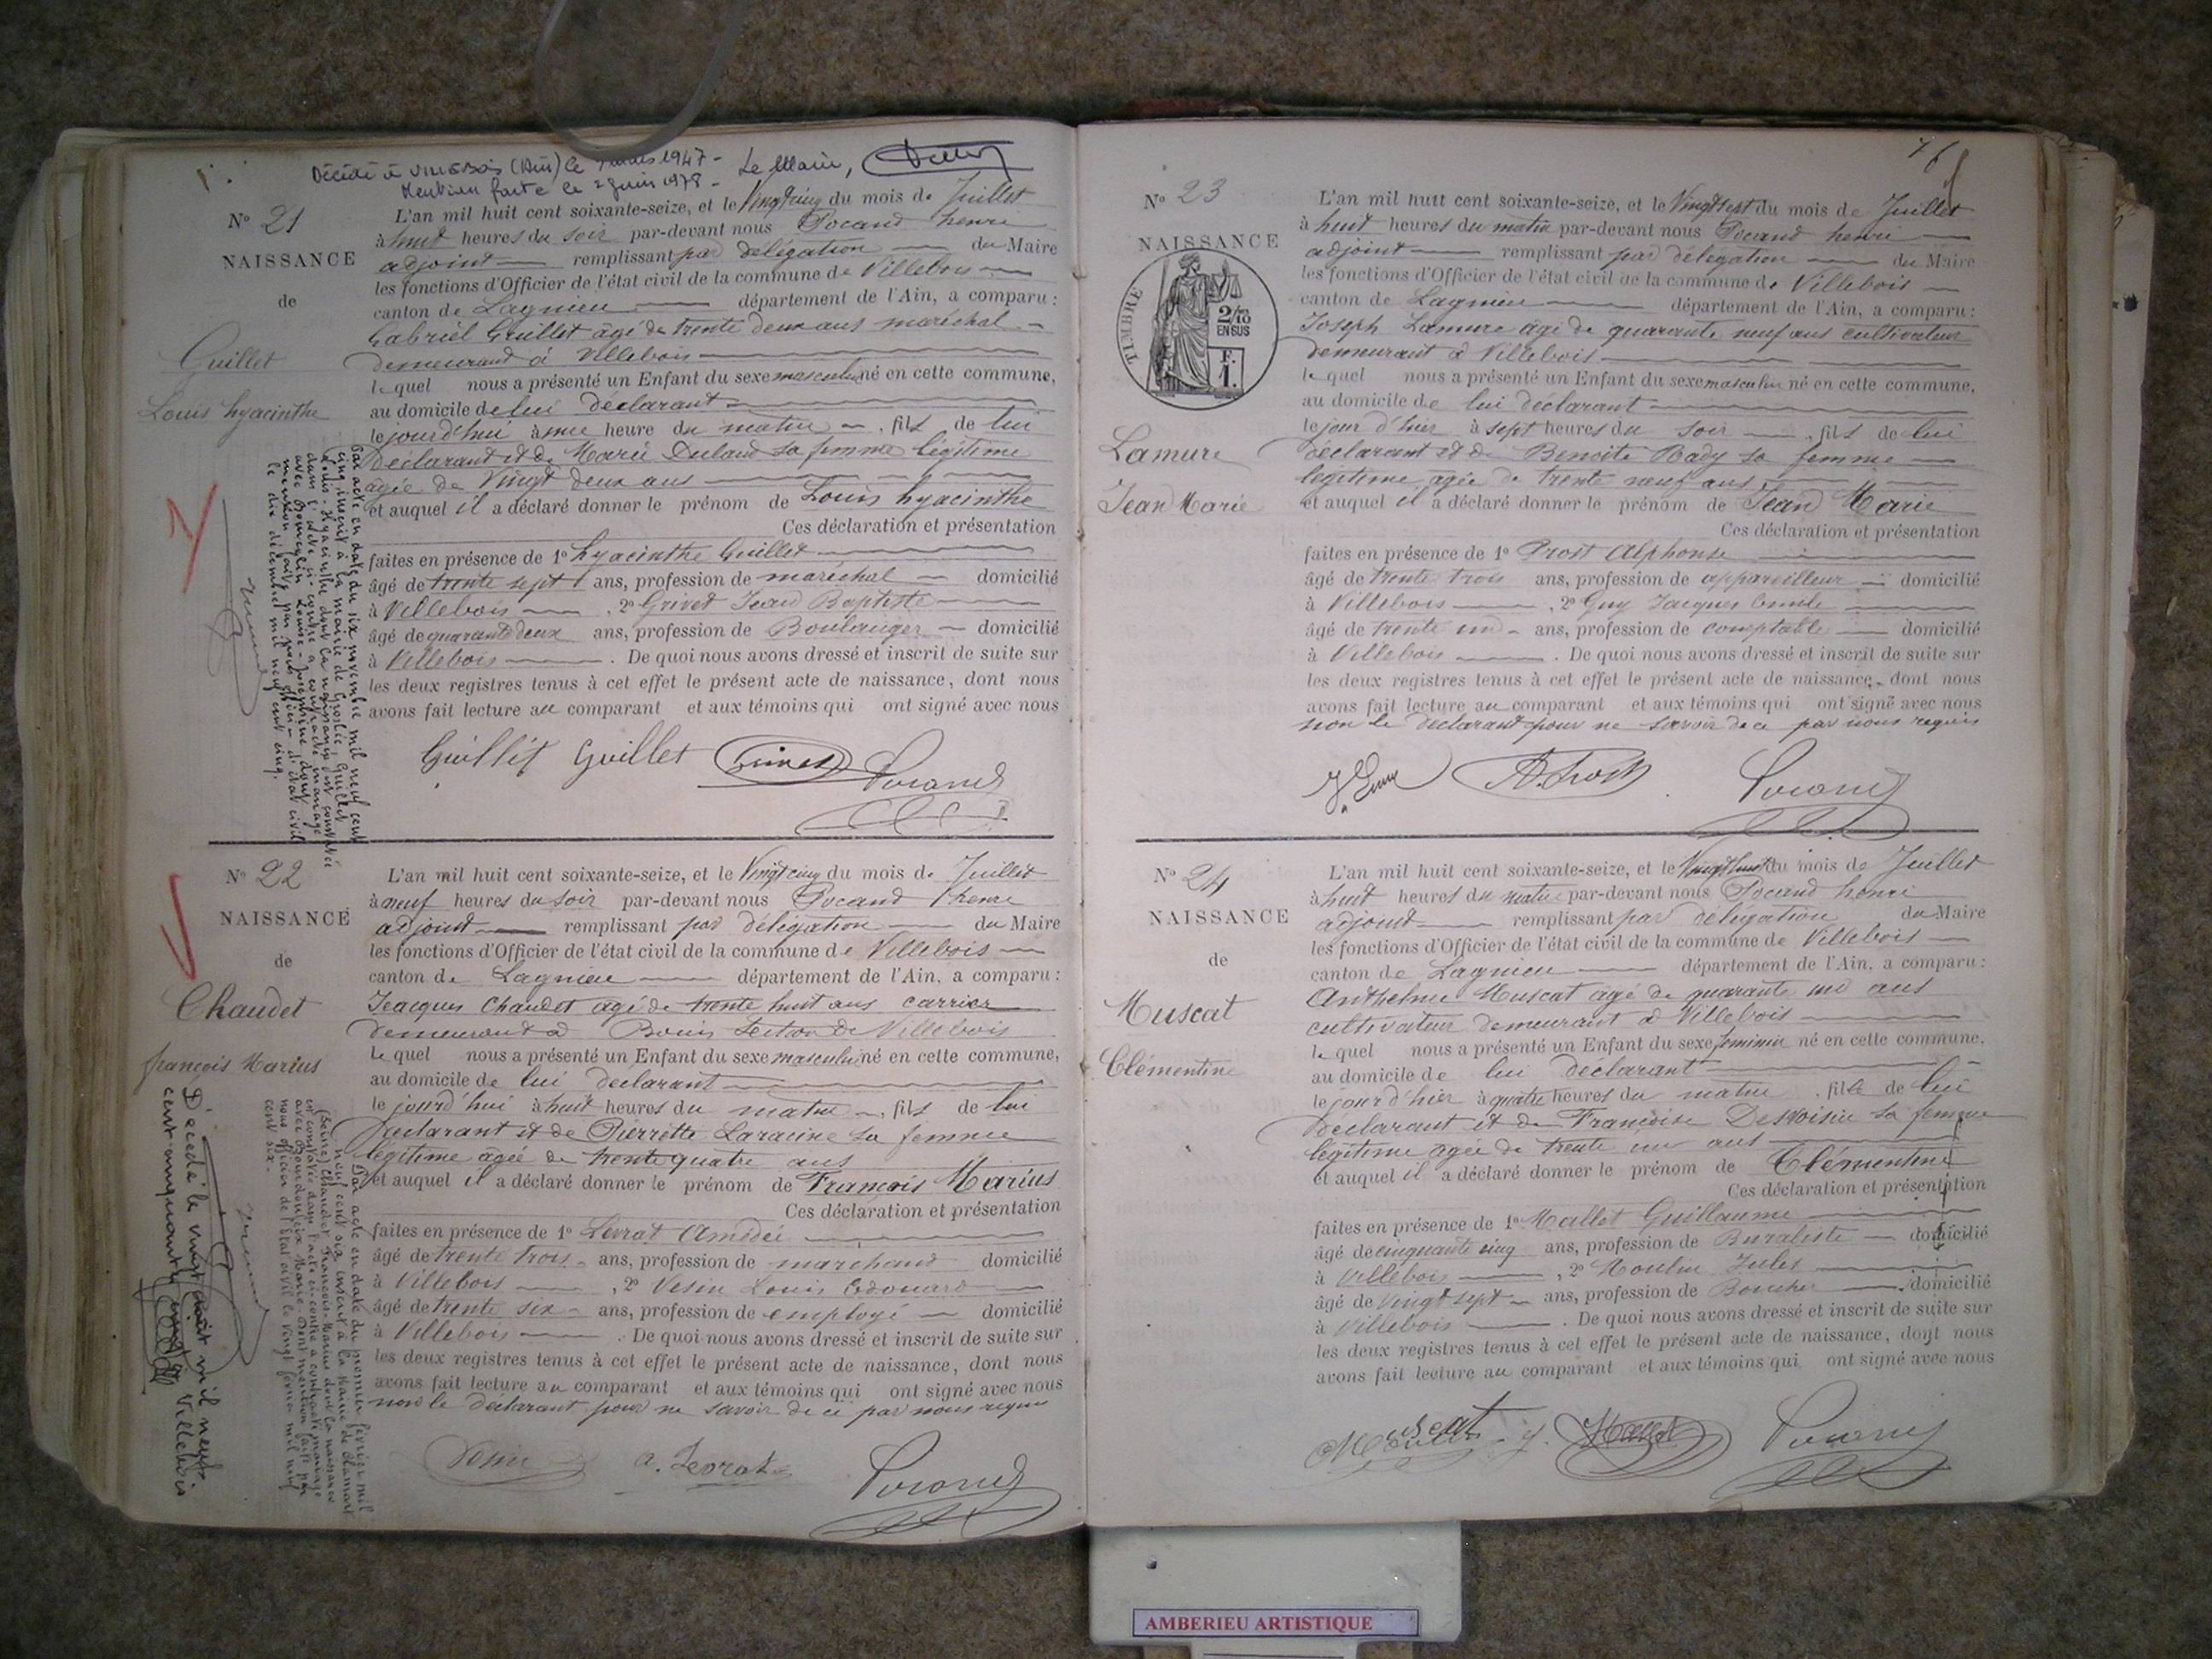 Décédé à Villebois (Ain) le mars 1947 - Le Maire,
Mention faite le 2 Juin 1978 -
N° 21
NAISSANCE
de
Guillet
Louis hyacinthe
L'an mil huit cent soixante-seize, et le Vingt cinq du mois de Juillet
à huit heures du soir par-devant nous Pocand henri
adjoint remplissant par délégation du Maire
les fonctions d'Officier de l'état civil de la commune de Villebois
canton de Lagnieu département de l'Ain, a comparu :
Gabriel Guillet âgé de trente deux ans maréchal
demeurant à Villebois
lequel nous a présenté un Enfant du sexe masculin né en cette commune,
au domicile de lui déclarant
le jourd'hui à une heure du matin, fils de lui
déclarant et de Marie Dulaud sa femme légitime
âgée de Vingt deux ans
et auquel il a déclaré donner le prénom de Louis hyacinthe
Ces déclaration et présentation
faites en présence de 1° hyacinthe Guillet
âgé de trente sept ans, profession de maréchal domicilié
à Villebois, 2° Grivet Jean Baptiste
âgé de quarante deux ans, profession de Boulanger domicilié
à Villebois. De quoi nous avons dressé et inscrit de suite sur
les deux registres tenus à cet effet le présent acte de naissance, dont nous
avons fait lecture au comparant et aux témoins qui ont signé avec nous
Guillet Guillet Grivet Pocand
Par acte en date du six novembre mil neuf cent
cinq inscrit à la mairie de Groslée, Guillet
Louis-Hyacinthe dont la naissance est constatée
dans l'acte ci-contre a contracté mariage
avec Louise-Joséphine dont
mention faite par nous officier d'état civil
le dix décembre mil neuf cent cinq.
N° 22
NAISSANCE
de
Chaudet
françois Marius
L'an mil huit cent soixante-seize, et le Vingt cinq du mois de Juillet
à neuf heures du soir par-devant nous Pocand henri
adjoint remplissant par délégation du Maire
les fonctions d'Officier de l'état civil de la commune de Villebois
canton de Lagnieu département de l'Ain, a comparu :
Jeacques Chaudet agé de trente huit ans carrier
demeurant à Bouis Section de Villebois
lequel nous a présenté un Enfant du sexe masculin né en cette commune,
au domicile de lui déclarant
le jourd'hui à huit heures du matin, fils de lui
déclarant et de Pierrette Laracine sa femme
légitime âgée de trente quatre ans
et auquel il a déclaré donner le prénom de François Marius
Ces déclaration et présentation
faites en présence de 1° Levrat Amédée
âgé de trente trois ans, profession de marchand domicilié
à Villebois, 2° Vesin Louis Edouard
âgé de trente six ans, profession de employé domicilié
à Villebois. De quoi nous avons dressé et inscrit de suite sur
les deux registres tenus à cet effet le présent acte de naissance, dont nous
avons fait lecture au comparant et aux témoins qui ont signé avec nous
non le déclarant pour ne savoir de ce par nous requis
Vesin a. Levrat Pocand
Par acte en date du premier février mil
neuf cent six inscrit à la Mairie de Clamart
(Seine) Chaudet François-Marius dont la naissance
est constatée dans l'acte ci-contre a contracté mariage
avec Marie. Dont mention faite par
nous officier de l'Etat civil le vingt février mil neuf
cent six.
Décédé le vingt août mil neuf
cent cinquante Villebois
76
N° 23
NAISSANCE
TIMBRE
2/10
EN SUS
F.
1.
Lamure
Jean Marie
L'an mil huit cent soixante-seize, et le Vingt sept du mois de Juillet
à huit heures du matin par-devant nous Pocand henri
adjoint remplissant par délégation du Maire
les fonctions d'Officier de l'état civil de la commune de Villebois
canton de Lagnieu département de l'Ain, a comparu :
Joseph Lamure âgé de quarante neuf ans cultivateur
demeurant à Villebois
lequel nous a présenté un Enfant du sexe masculin né en cette commune,
au domicile de lui déclarant
le jour d'hier à sept heures du soir, fils de lui
déclarant et de Benoite Bady sa femme
légitime agée de trente neuf ans
et auquel il a déclaré donner le prénom de Jean Marie
Ces déclaration et présentation
faites en présence de 1° Prost Alphonse
âgé de trente trois ans, profession de appareilleur domicilié
à Villebois, 2° Guy Jacques Emile
âgé de trente un ans, profession de comptable domicilié
à Villebois. De quoi nous avons dressé et inscrit de suite sur
les deux registres tenus à cet effet le présent acte de naissance, dont nous
avons fait lecture au comparant et aux témoins qui ont signé avec nous
non le déclarant pour ne savoir de ce par nous requis
J. Guy A. Prost Pocand
N° 24
NAISSANCE
de
Muscat
Clémentine
L'an mil huit cent soixante-seize, et le Vingt huit du mois de Juillet
à huit heures du matin par-devant nous Pocand henri
adjoint remplissant par délégation du Maire
les fonctions d'Officier de l'état civil de la commune de Villebois
canton de Lagnieu département de l'Ain, a comparu :
Anthelme Muscat agé de quarante un ans
cultivateur demeurant à Villebois
lequel nous a présenté un Enfant du sexe féminin né en cette commune,
au domicile de lui déclarant
le jour d'hier à quatre heures du matin, fille de lui
déclarant et de Françoise Desvoisin sa femme
légitime agée de trente un ans
et auquel il a déclaré donner le prénom de Clémentine
Ces déclaration et présentation
faites en présence de 1° Mallet Guillaume
âgé de cinquante cinq ans, profession de Buraliste domicilié
à Villebois, 2° Moulin Jules
âgé de Vingt sept ans, profession de Boucher domicilié
à Villebois. De quoi nous avons dressé et inscrit de suite sur
les deux registres tenus à cet effet le présent acte de naissance, dont nous
avons fait lecture au comparant et aux témoins qui ont signé avec nous
Muscat
Moulin j. Mallet Pocand
AMBERIEU ARTISTIQUE